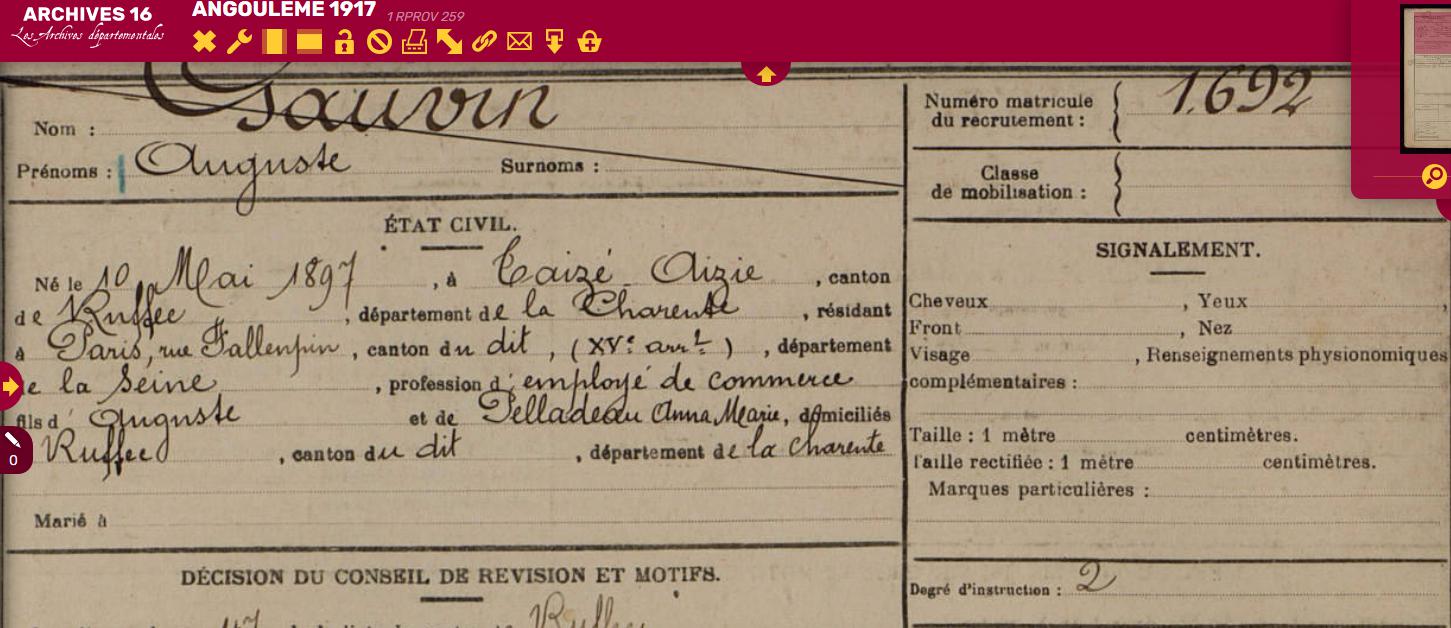 ARCHIVES 16
Les Archives départementales
ANGOULEME 1917 1 RPROV 259
Nom : Gauvin
Prénoms : Auguste Surnoms :
Numéro matricule
du recrutement : 1692
Classe
de mobilisation :
ÉTAT CIVIL.
Né le 10 Mai 1897, à Taizé Aizie, canton
de Ruffec, département de la Charente, résidant
à Paris, rue Fallempin, canton du dit, (XVe arrt), département
e la Seine, profession d'employé de commerce
fils d'Auguste et de Pelladeau Anna Marie, domiciliés
Ruffec, canton du dit, département de la Charente
Marié à
SIGNALEMENT.
Cheveux, Yeux,
Front, Nez
Visage, Renseignements physionomiques
complémentaires :
Taille : 1 mètre centimètres.
Taille rectifiée : 1 mètre centimètres.
Marques particulières :
DÉCISION DU CONSEIL DE REVISION ET MOTIFS.
Degré d'instruction : 2
0